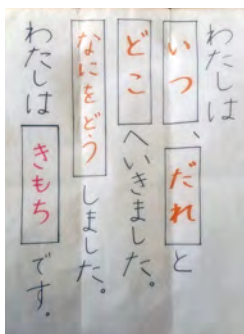 わたしは
いつ、だれと
どこへいきました。
なにをどうしました。
わたしはきもちです。